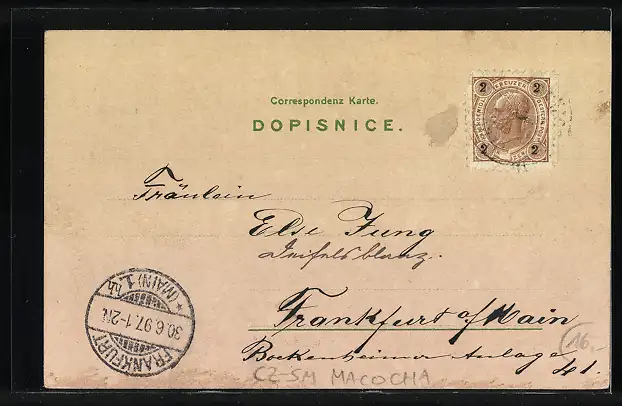 Correspondenz Karte.
DOPISNICE.
2 KREUZER 2
2 2
Fräulein
Else Jung
Frankfurt a/Main
Bockenheimer Anlage
41.
FRANKFURT
* (MAIN) 1. hh
30.6.97.1-2N.
16.-
CZ-SM MACOCHA